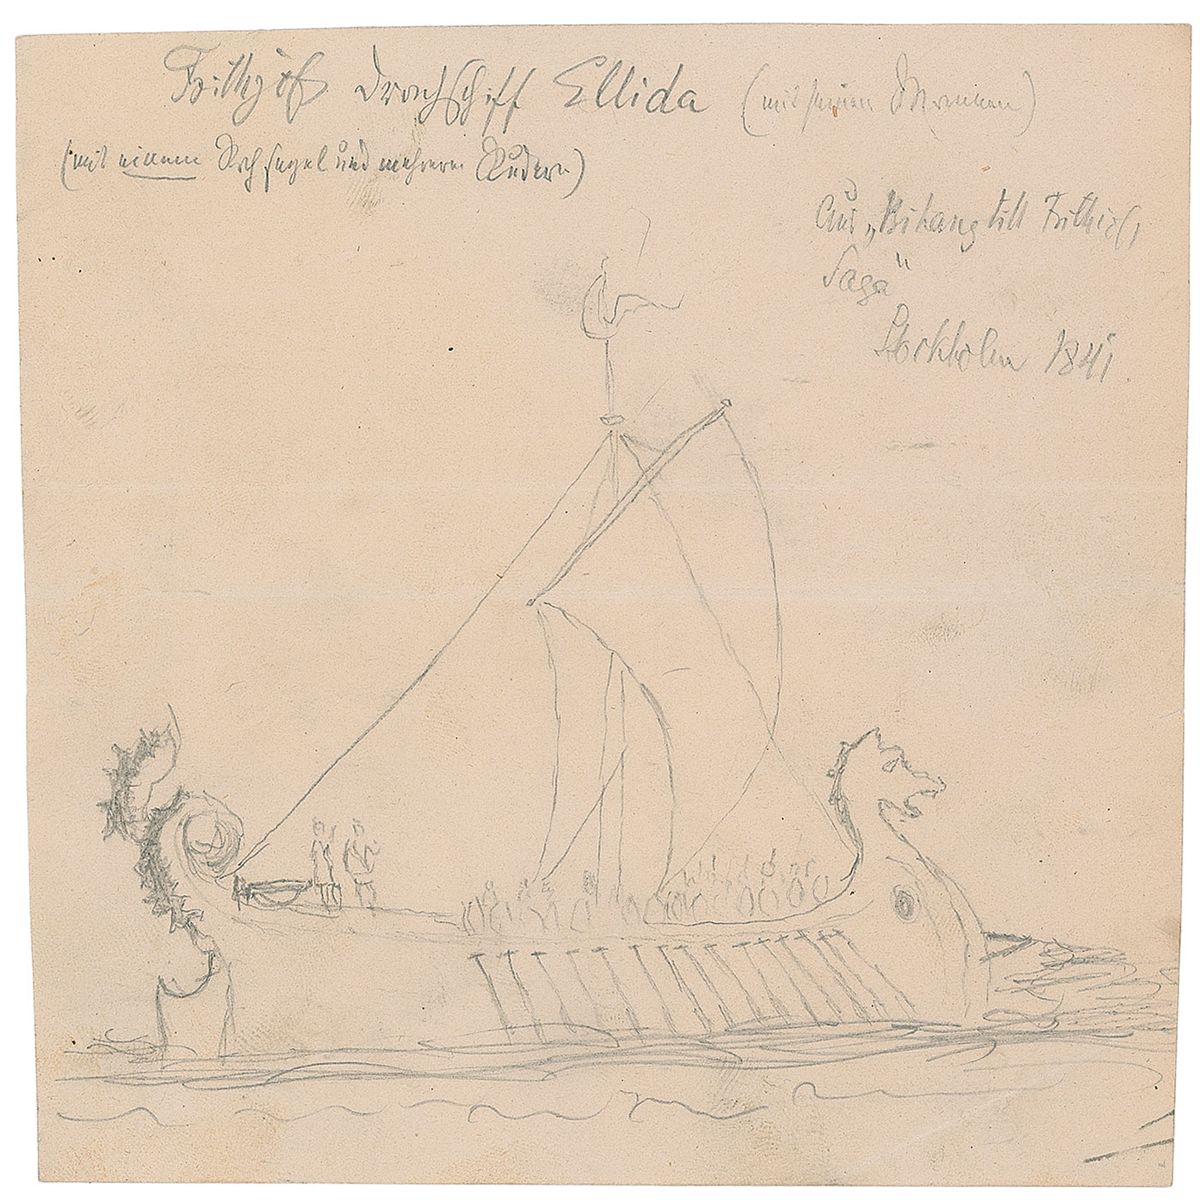 Frithjofs Drachschiff Ellida (mit seinen Mannen)
(mit einem Rahsegel und mehreren Rudern)
Aus „Bihang till Frithiofs
Saga"
Stockholm 1841